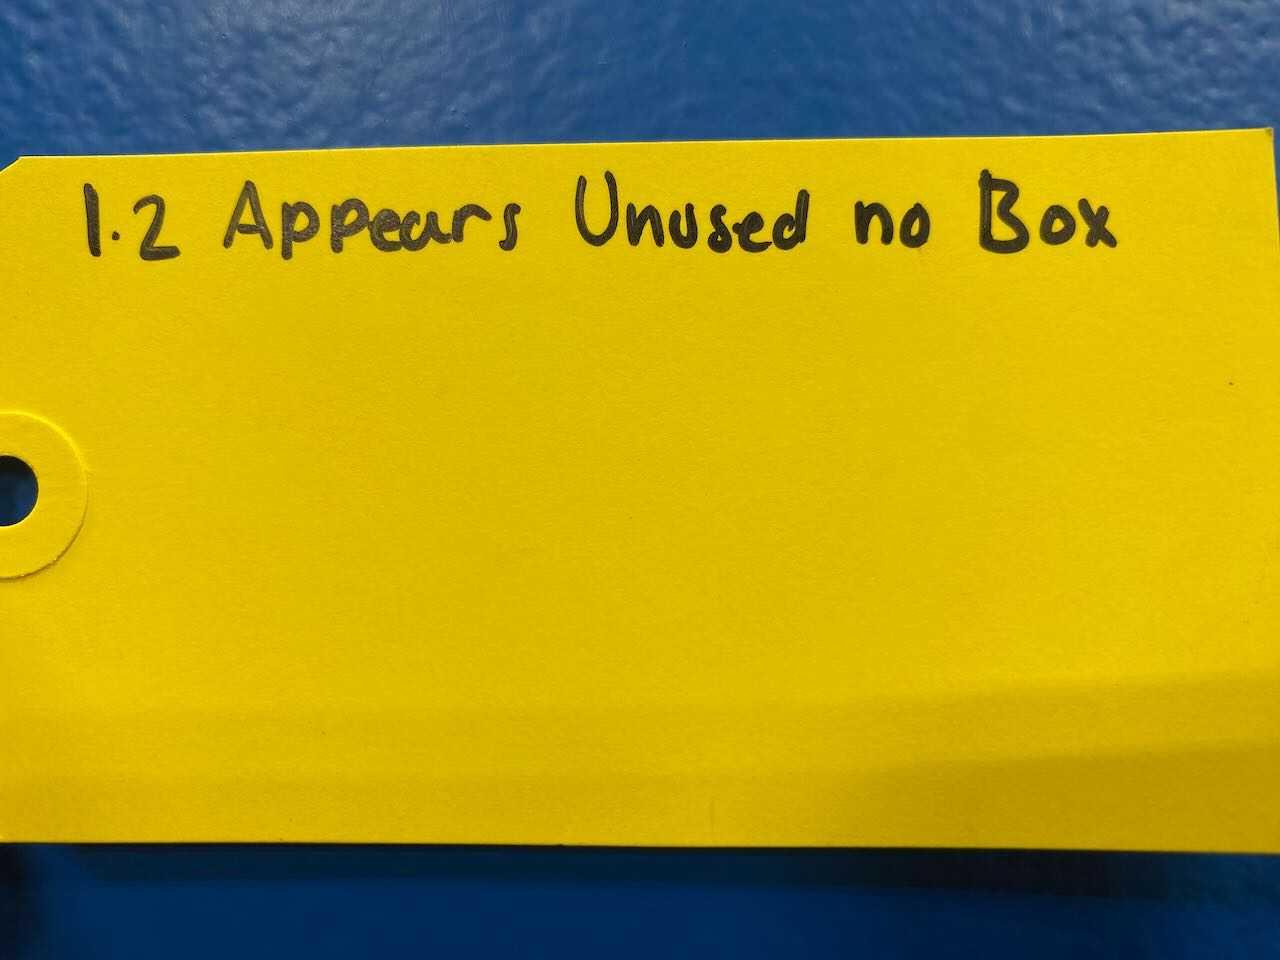 1.2 Appears Unused no Box